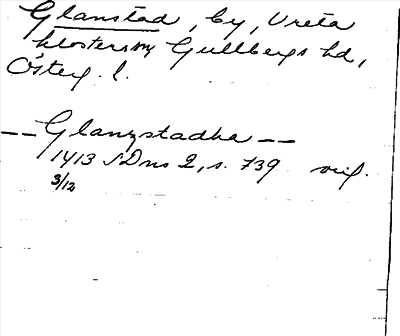 Glanstad, by, Vreta
klosters sn Gullbergs hd,
Österg. l.
-- Glanzstadha --
1413 SDns 2, s. 739 orig.
3/12